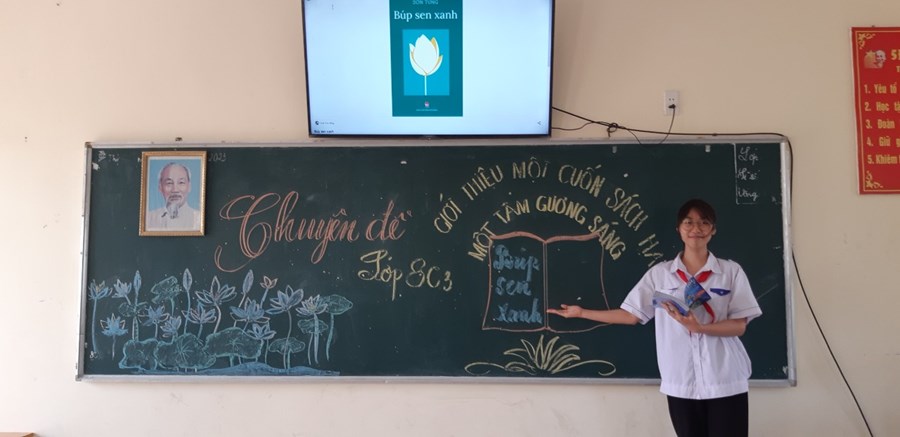 SƠN TÙNG
Búp sen xanh
2021
Chuyên đề
Lớp 8C3
GIỚI THIỆU MỘT CUỐN SÁCH HAY
MỘT TẤM GƯƠNG SÁNG
Búp
sen
xanh
Lớp
1. Yêu tổ
2. Học tậ
3. Đoàn
4. Giữ g
5. Khiêm